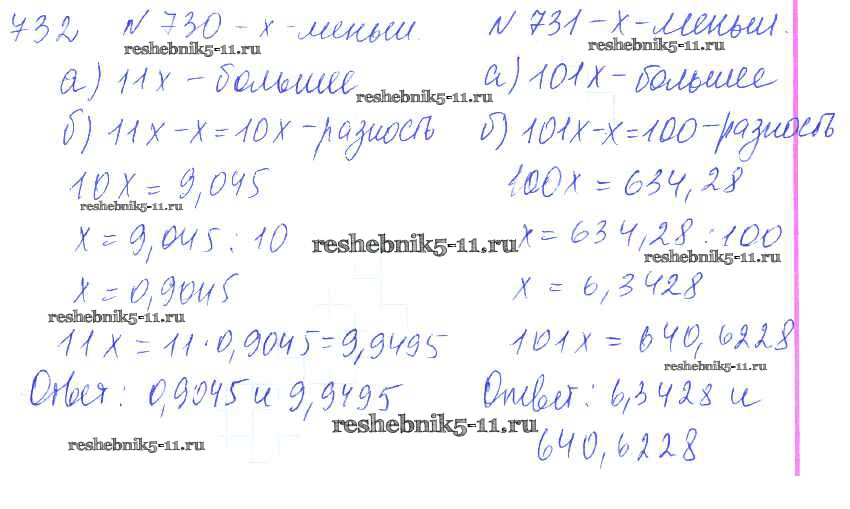 732 N 730 - х - меньш.
reshebnik5-11.ru
а) 11х - большее
reshebnik5-11.ru
б) 11х - х = 10х - разность
10х = 9,045
reshebnik5-11.ru
х = 9,045 : 10
reshebnik5-11.ru
х = 0,9045
reshebnik5-11.ru
11х = 11 · 0,9045 = 9,9495
Ответ: 0,9045 и 9,9495
reshebnik5-11.ru
reshebnik5-11.ru
N 731 - х - меньш.
reshebnik5-11.ru
а) 101х - большее
б) 101х - х = 100 - разность
100х = 634,28
х = 634,28 : 100
reshebnik5-11.ru
х = 6,3428
101х = 640,6228
reshebnik5-11.ru
Ответ: 6,3428 и
640,6228